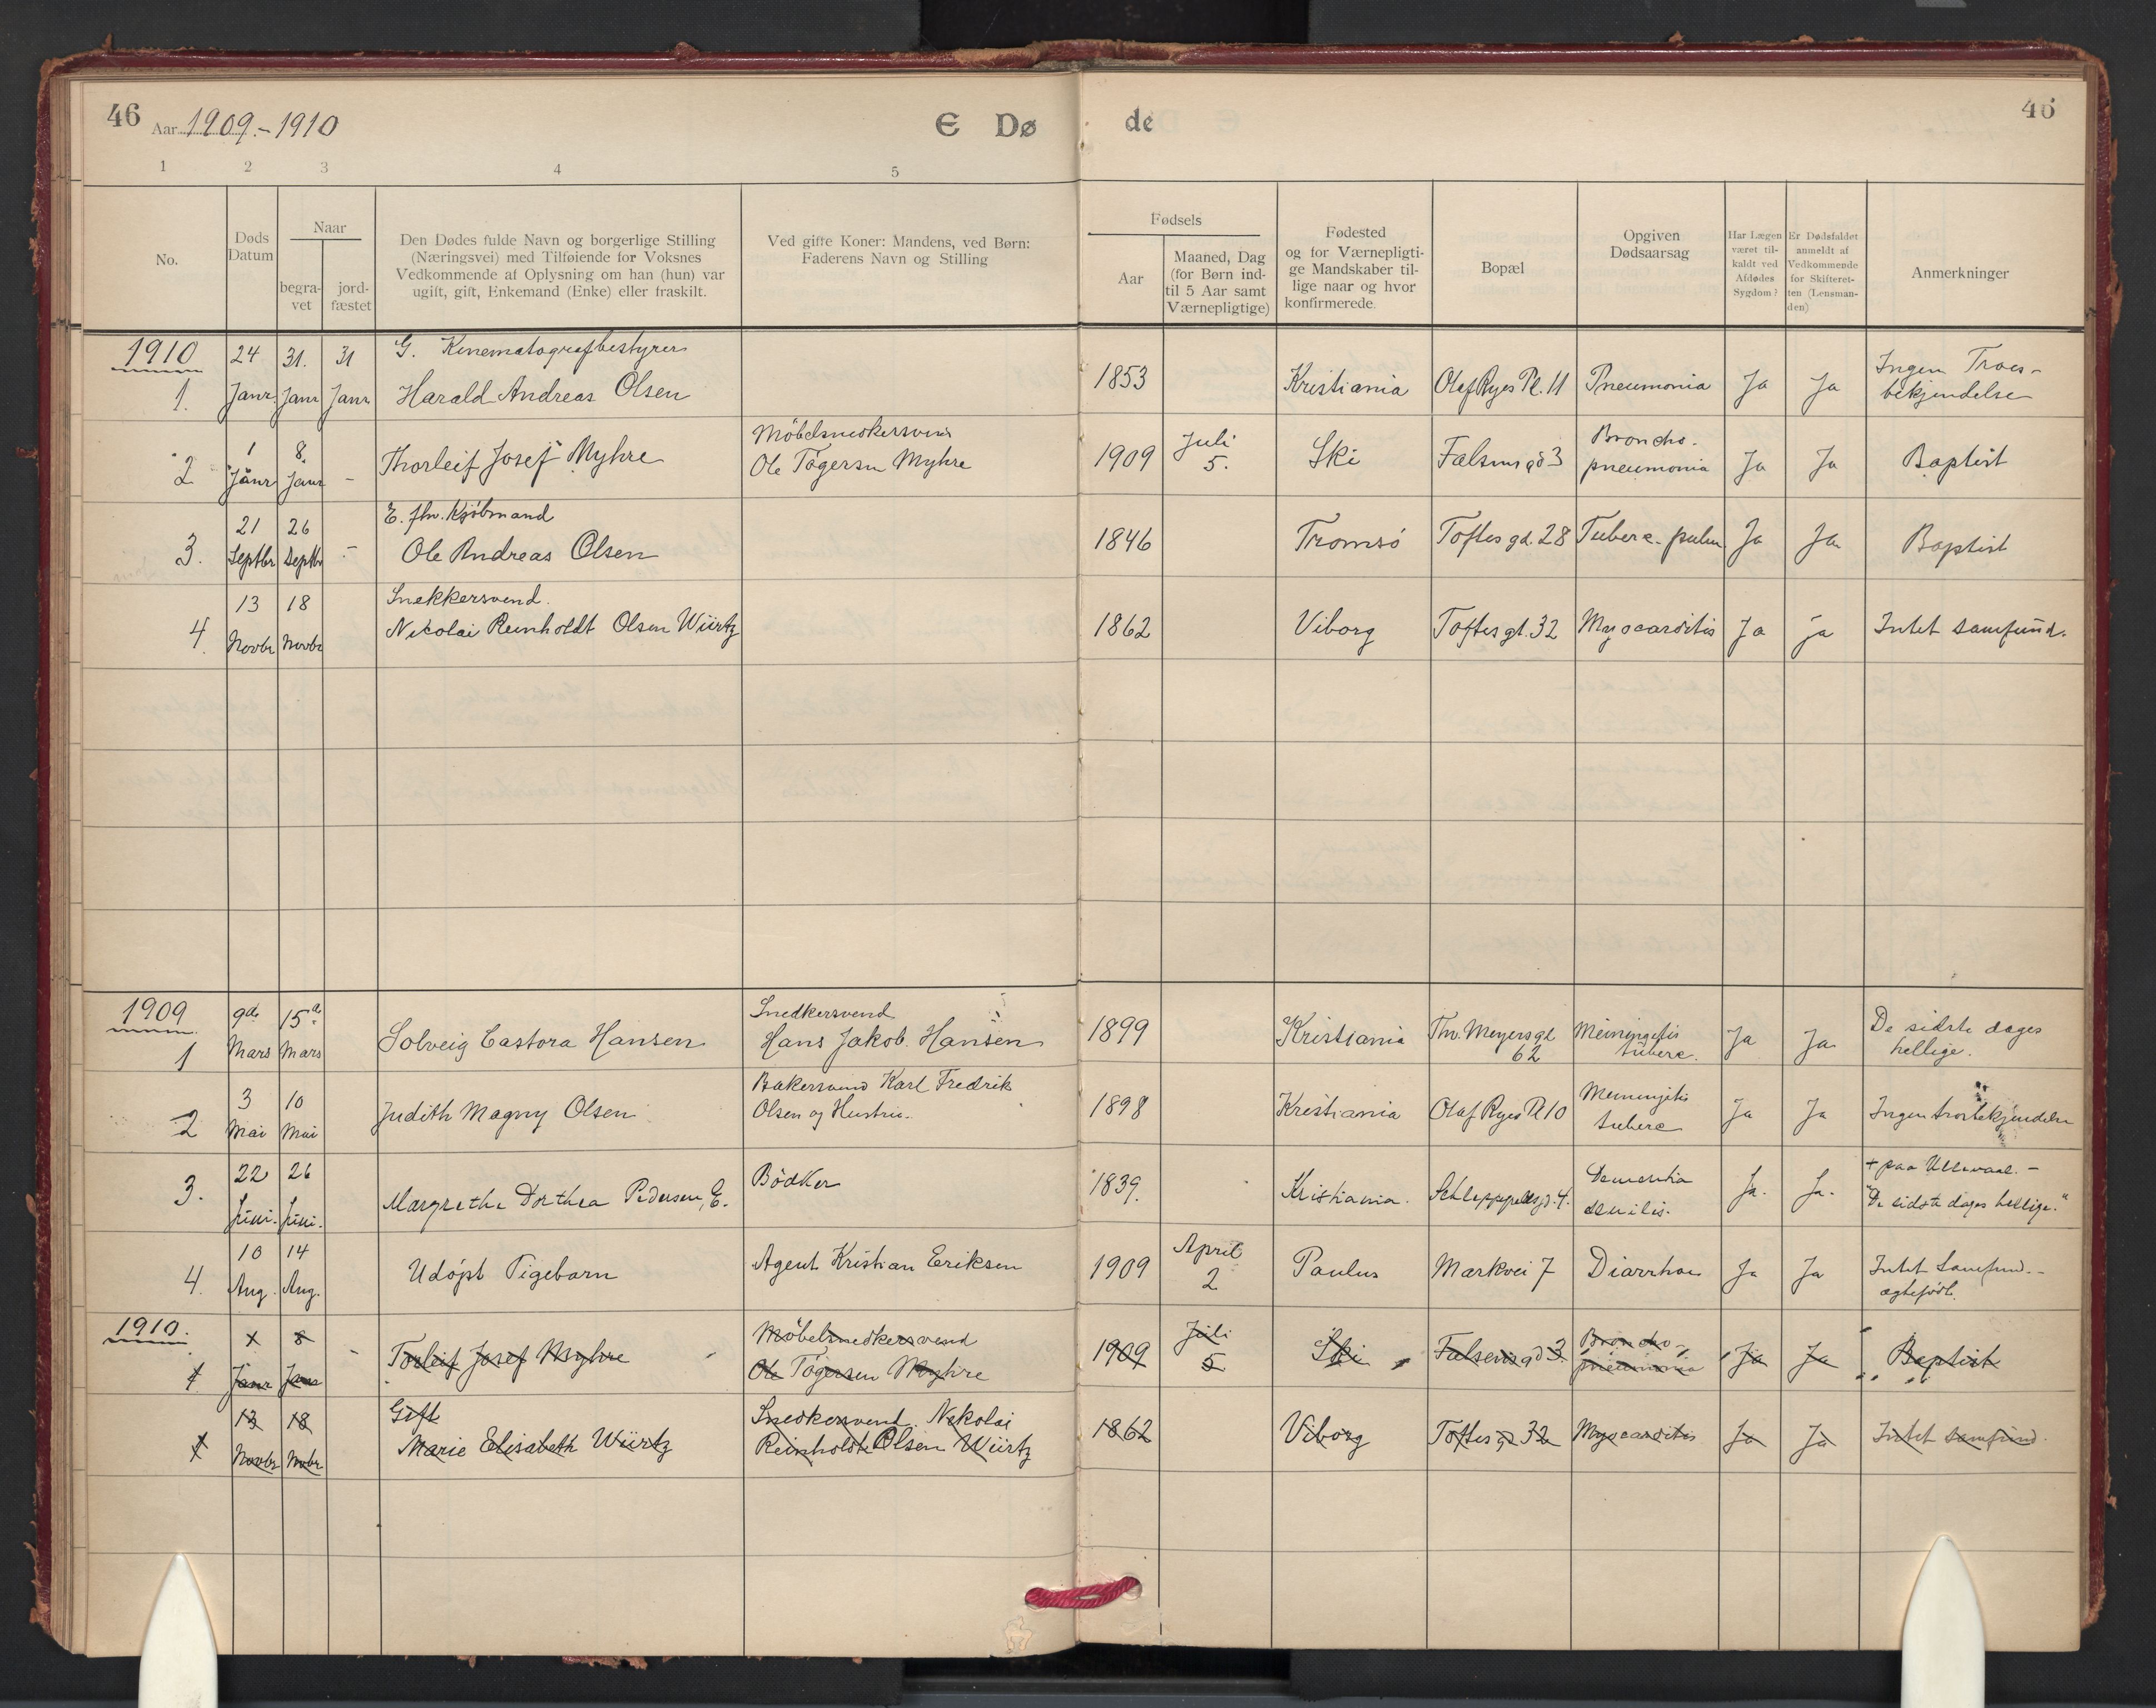 46 Aar 1909.-1910 E Dø de 46
1 2 3 4 5
No.
Døds Datum
Naar
begra-vet
jord-fæstet
Den Dødes fulde Navn og borgerlige Stilling
(Næringsvei) med Tilføiende for Voksnes
Vedkommende af Oplysning om han (hun) var
ugift, gift, Enkemand (Enke) eller fraskilt.
Ved gifte Koner: Mandens, ved Børn:
Faderens Navn og Stilling
Fødsels
Aar
Maaned, Dag
(for Børn ind-
til 5 Aar samt
Værnepligtige)
Fødested
og for Værnepligti-
ge Mandskaber til-
lige naar og hvor
konfirmerede.
Bopæl
Opgiven
Dødsaarsag
Har Lægen
været til-
kaldt ved
Afdødes
Sygdom?
Er Dødsfaldet
anmeldt af
Vedkommende
for Skifteret-
ten (Lensman-
den)
Anmerkninger
1910 24 31. 31 G. Kinematografbestyrer Ingen Troes-
1. Janr Janr Janr Harald Andreas Olsen 1853 Kristiania Olaf Ryes Pl. 11 Pneumonia Ja Ja bekjendelse
1 8. Möbelsnedkersvend Juli Broncho-
2 Janr Janr - Thorleif Josef Myhre Ole Tögersen Myhre 1909 5. Ski Falsensgd 3 pneumonia Ja Ja Baptist
21 26 E. fhv. Kjöbmand
3. Septbr Septbr - Ole Andreas Olsen 1846 Tromsö Toftesgd. 28 Tuberc. pulm Ja Ja Baptist
13 18 Snekkersvend.
4. Novbr Novbr Nikolai Reinholdt Olsen Würtz 1862 Viborg Toftesgt. 32 Myocarditis Ja ja Intet samfund.
1909 9de 15de Snedkersvend De sidste dages
1 Mars Mars Solveig Castora Hansen Hans Jakob Hansen 1899 Kristiania Thv. Meyersgd 62 Meiningitis tuberc. Ja Ja hellige.
3 10 Bakersvend Karl Fredrik Meningitis
2 Mai Mai Judith Magny Olsen Olsen og Hustru. 1898 Kristiania Olaf Ryes Pl 10 tuberc Ja Ja Ingen trosbekjendelse
22 26 Bödker Dementia + paa Ullevaal. -
3. Juni. Juni. Margrethe Dorthea Pedersen, E. 1839. Kristiania. Schleppegrellsgd. 4. senilis. Ja. Ja. "De sidste dages hellige."
10 14 April Intet Samfund. -
4. Aug. Aug. Udöpt Pigebarn Agent Kristian Eriksen 1909 2 Paulus Markvei 7 Diarrhoe Ja Ja ægtefödt.
1910. 1 8 Möbelsnedkersvend Juli Broncho-
1 Janr Janr - Torleif Josef Myhre Ole Tögersen Myhre 1909 5 Ski Falsensgd 3. pneumonia Ja Ja Baptist
13 18 Gift Snedkersvend. Nikolai
1 Novbr Novbr Marie Elisabeth Würtz Reinholdt Olsen Würtz 1862 Viborg Toftesgd 32 Myocarditis Ja Ja Intet samfund.